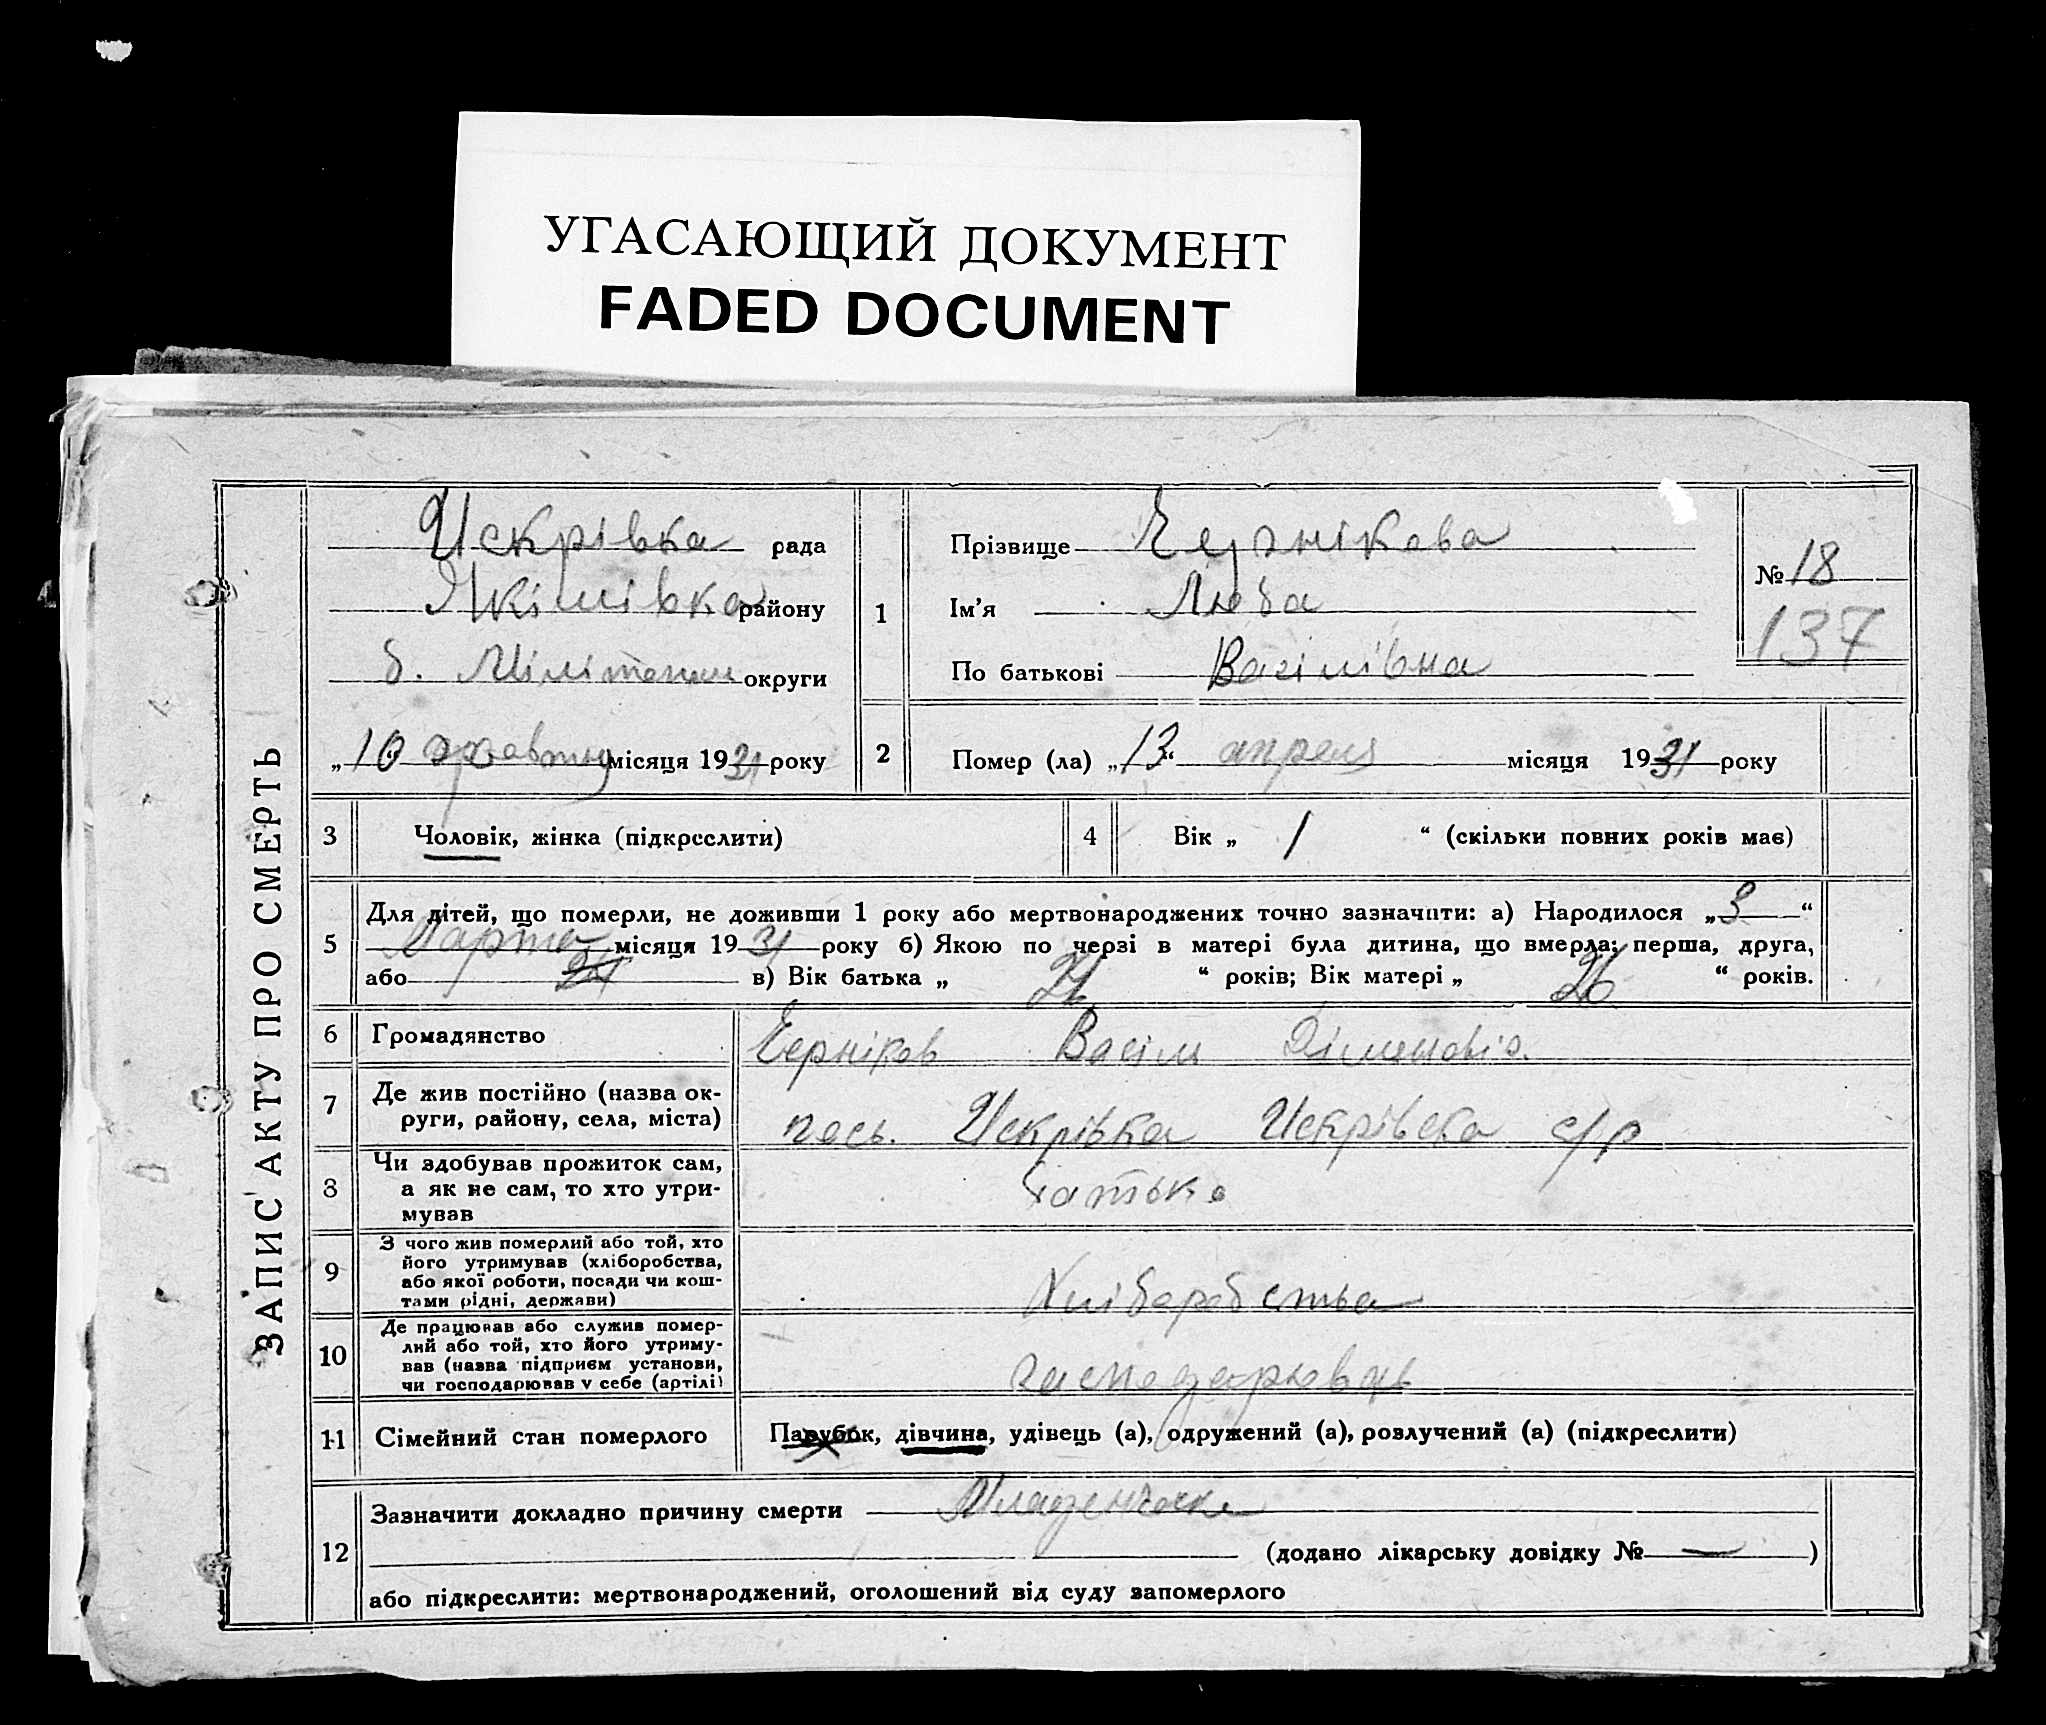 УГАСАЮЩИЙ ДОКУМЕНТ
FADED DOCUMENT
ЗАПИС АКТУ ПРО СМЕРТЬ
Искрівка рада
Якімівка району
б. Мілітопол округи
„10 травтня місяця 1931 року
1
Прізвище Чернікова
Ім’я Люба
По батькові Васілівна
№ 18
137
2
Помер (ла) „13“ апреля місяця 1931 року
3 Чоловік, жінка (підкреслити)
4 Вік „ 1 “ (скільки повних років має)
5 Для дітей, що померли, не доживши 1 року або мертвонароджених точно зазначити: а) Народилося „3“
Марта місяця 1931 року б) Якою по черзі в матері була дитина, що вмерла: перша, друга,
або в) Вік батька „ “ років; Вік матері „ 26 “ років.
6 Громадянство Черніков Васіл
7 Де жив постійно (назва ок-
руги, району, села, міста) пось. Искрівка Искрівска с/р
8 Чи здобував прожиток сам,
а як не сам, то хто утри-
мував батько
9 З чого жив померлий або той, хто
його утримував (хліборобства,
або якої роботи, посади чи кош-
тами рідні, держави) Хліборобства
10 Де працював або служив помер-
лий або той, хто його утриму-
вав (назва підприєм установи,
чи господарював у себе (артілі)
11 Сімейний стан померлого Парубок, дівчина, удівець (а), одружений (а), розлучений (а) (підкреслити)
12 Зазначити докладно причину смерти
(додано лікарську довідку № — )
або підкреслити: мертвонароджений, оголошений від суду запомерлого